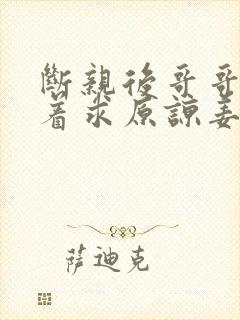 斷親後哥哥
着求原諒姜
萨迪克